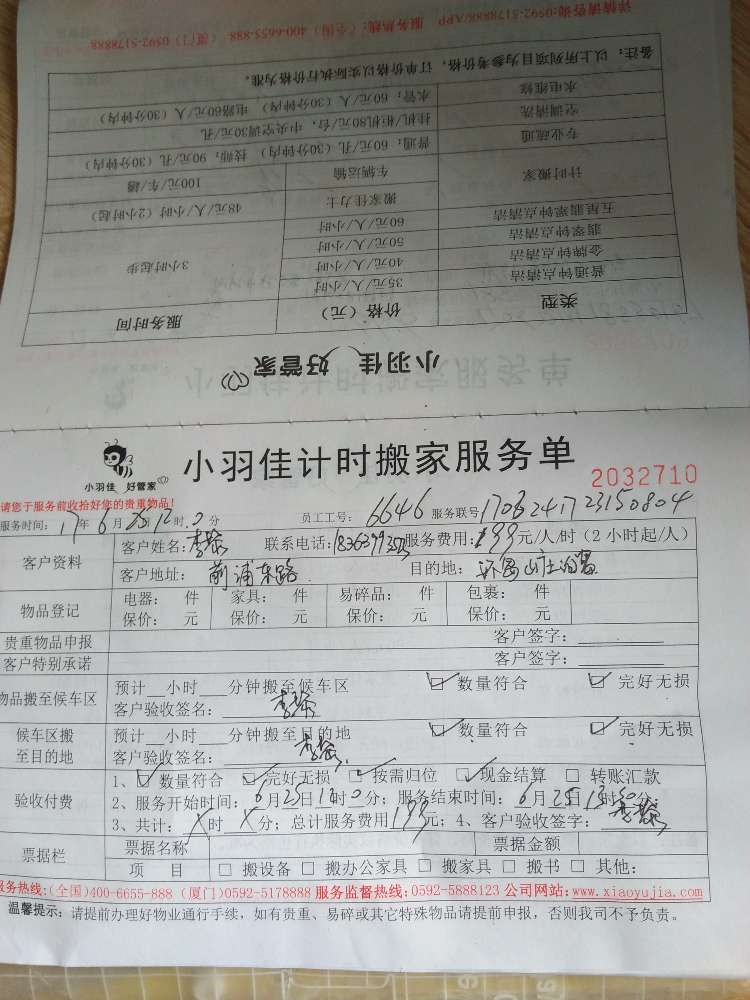 详情请咨询:0592-5178888/APP 服务热线:(全国)400-6655-888 (厦门)0592-5178888
备注:以上所列项目为参考价格,订单价格以实际执行价格为准。
水电维修 水管:60元/人(30分钟内) 电路60元/人(30分钟内)
空调清洗 挂机/柜机80元/台,中央空调30元/孔
专业疏通 普通:60元/孔(30分钟内) 技师:90元/孔(30分钟内)
计时搬家 车辆运输 100元/车/趟
搬家佳力士 48元/人/小时(2小时起)
五星翡翠钟点清洁 60元/人/小时
翡翠钟点清洁 50元/人/小时
金牌钟点清洁 40元/人/小时 3小时起步
普通钟点清洁 35元/人/小时
类型 价格(元) 服务时间
小羽佳 好管家
小羽佳 好管家
小羽佳计时搬家服务单
2032710
请您于服务前收拾好您的贵重物品!
服务时间:17年6月25日12时0分 员工工号:6646 服务联号
客户资料 客户姓名: 联系电话: 服务费用:199元/人/时(2小时起/人)
客户地址:前浦东路 目的地:
物品登记 电器: 件 家具: 件 易碎品: 件 包裹: 件
保价: 元 保价: 元 保价: 元 保价: 元
贵重物品申报 客户签字:
客户特别承诺 客户签字:
物品搬至候车区 预计 小时 分钟搬至候车区 ☑ 数量符合 ☑ 完好无损
客户验收签名:
候车区搬至目的地 预计 小时 分钟搬至目的地 ☑ 数量符合 ☑ 完好无损
客户验收签名:
验收付费 1、☑ 数量符合 ☑ 完好无损 ☑ 按需归位 ☑ 现金结算 □ 转账汇款
2、服务开始时间:6月25日12时0分;服务结束时间:6月25日13时30分;
3、共计:X时X分;总计服务费用199元;4、客户验收签字:
票据栏 票据名称 票据金额
项 目 □ 搬设备 □ 搬办公家具 □ 搬家具 □ 搬书 □ 其他:
服务热线:(全国)400-6655-888 (厦门)0592-5178888 服务监督热线:0592-5888123 公司网站:www.xiaoyujia.com
温馨提示:请提前办理好物业通行手续,如有贵重、易碎或其它特殊物品请提前申报,否则我司不予负责。